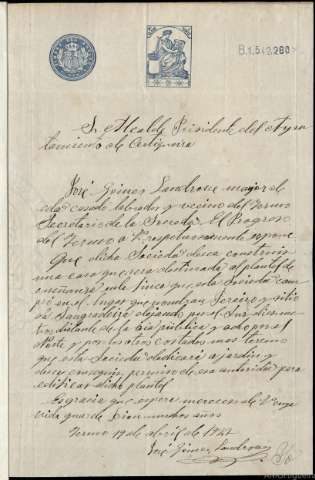 B.1.542.260
Sr Alcalde Presidente del Ayun
tamiento de Ortigueira
José Gómez Landrove mayor de
edad casado labrador y vecino del Yermo
Secretario de la Sociedad El Progreso
del Yermo a V. respetuosamente expone
Que dicha Sociedad desea construir
una casa que sera destinada al plantel de
enseñanza en la finca que esta Sociedad com
pró en el lugar que nombran y sitio
de dejando por el Sur diez me
tros delante de la via pública y ado por el
Norte y por los otros costados mas terreno
que esta Sociedad dedicará a jardin y
desea conseguir permiso de esa autoridad para
edificar dicho plantel
Es gracia que espera merecer de V. cuya
vida guarde Dios muchos años
Yermo 19 de abril de 1927
José Gómez Landrove